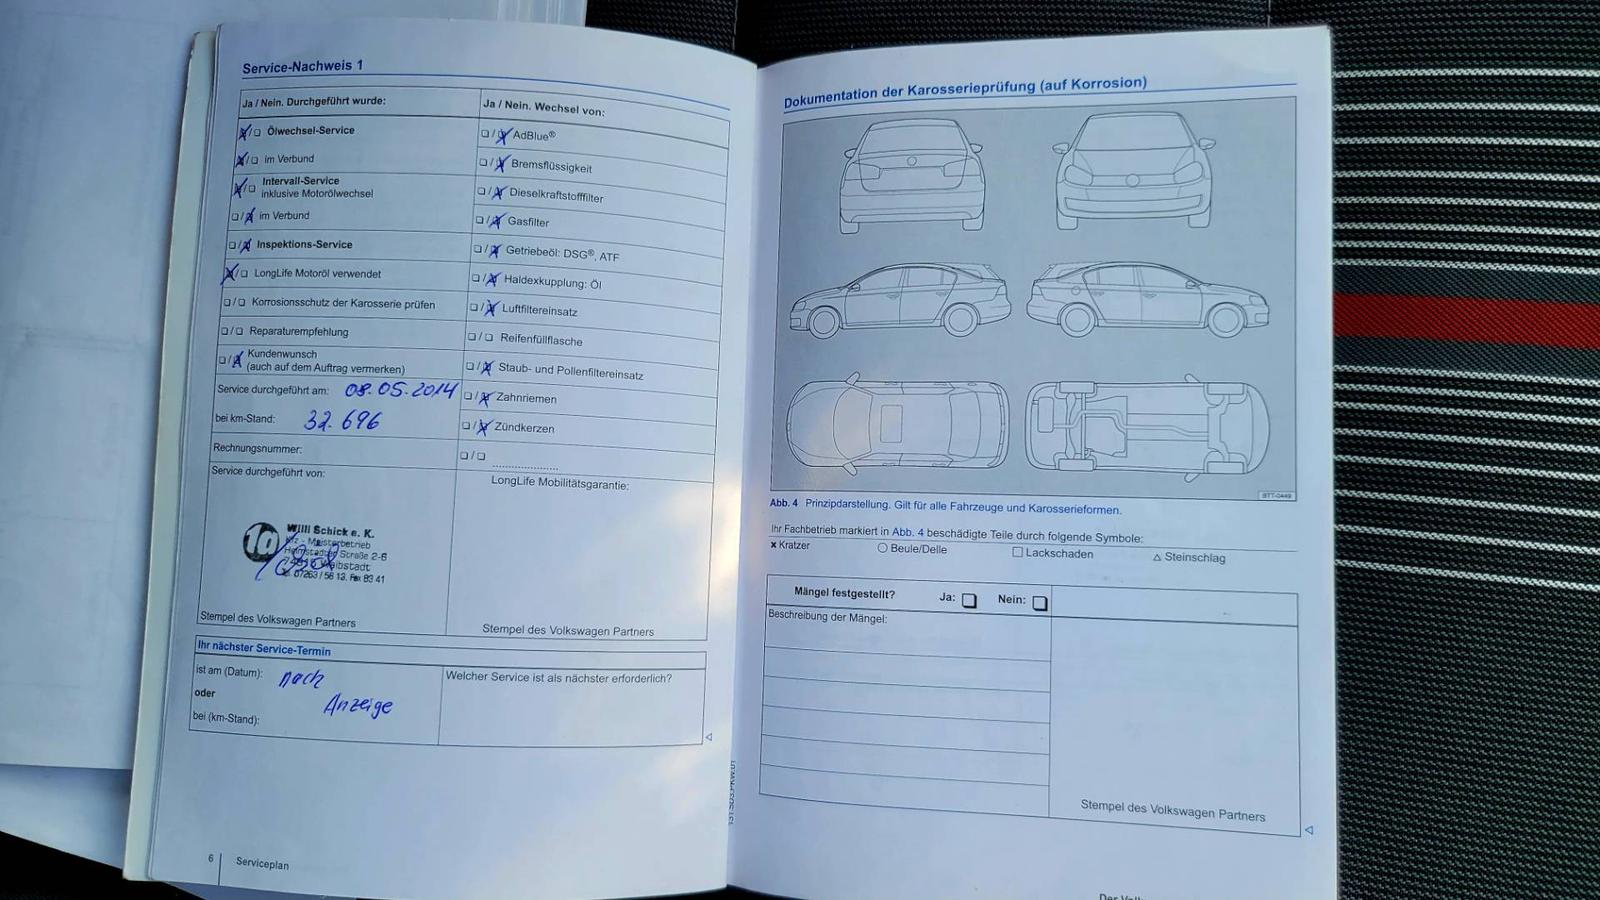 Service-Nachweis 1
Ja / Nein. Durchgeführt wurde:
Ölwechsel-Service
im Verbund
Intervall-Service
inklusive Motorölwechsel
im Verbund
Inspektions-Service
LongLife Motoröl verwendet
Korrosionsschutz der Karosserie prüfen
Reparaturempfehlung
Kundenwunsch
(auch auf dem Auftrag vermerken)
Service durchgeführt am: 08.05.2014
bei km-Stand: 32.696
Rechnungsnummer:
Service durchgeführt von:
1a
Willi Schick e. K.
Kfz - Meisterbetrieb
Straße 2-6
07263 / 56 13, Fax 83 41
Stempel des Volkswagen Partners
Ja / Nein. Wechsel von:
AdBlue®
Bremsflüssigkeit
Dieselkraftstofffilter
Gasfilter
Getriebeöl: DSG®, ATF
Haldexkupplung: Öl
Luftfiltereinsatz
Reifenfüllflasche
Staub- und Pollenfiltereinsatz
Zahnriemen
Zündkerzen
LongLife Mobilitätsgarantie:
Stempel des Volkswagen Partners
Ihr nächster Service-Termin
ist am (Datum): nach
oder Anzeige
bei (km-Stand):
Welcher Service ist als nächster erforderlich?
6 Serviceplan
Dokumentation der Karosserieprüfung (auf Korrosion)
BTT-0449
Abb. 4 Prinzipdarstellung. Gilt für alle Fahrzeuge und Karosserieformen.
Ihr Fachbetrieb markiert in Abb. 4 beschädigte Teile durch folgende Symbole:
Kratzer Beule/Delle Lackschaden Steinschlag
Mängel festgestellt? Ja: Nein:
Beschreibung der Mängel:
Stempel des Volkswagen Partners